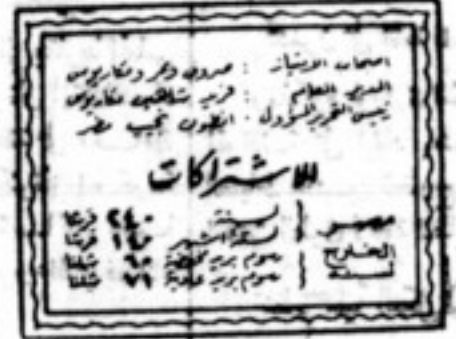 اصحاب الامتياز : صروف ونمر ومكاريوس
المدير العام : فريد شاهين مكاريوس
رئيس التحرير المسؤول : انطون نجيب مطر
للاشتراكات
مصر { لسنة ٢٤٠ قرشا
لستة اشهر ١٤٠ قرشا
الخارج { رسوم بريد مخفضة ٦٥ شلنا
لسنة رسوم بريد عادية ٧٦ شلنا